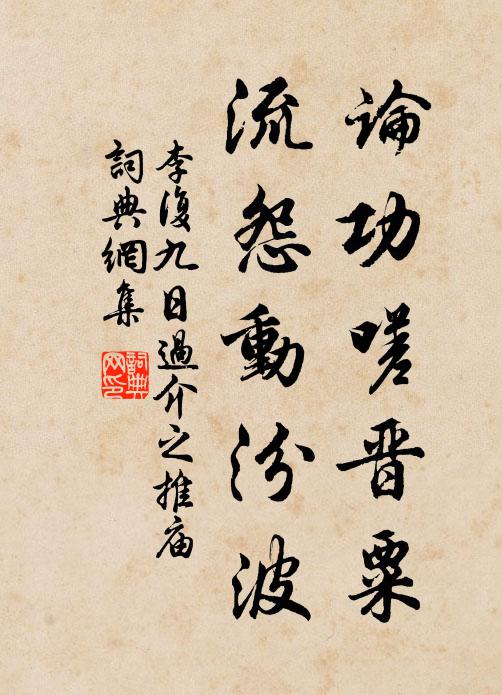 論功嗟晋粟
流怨動汾波
李復九日過介之推庙
詞典網集
詞典网印